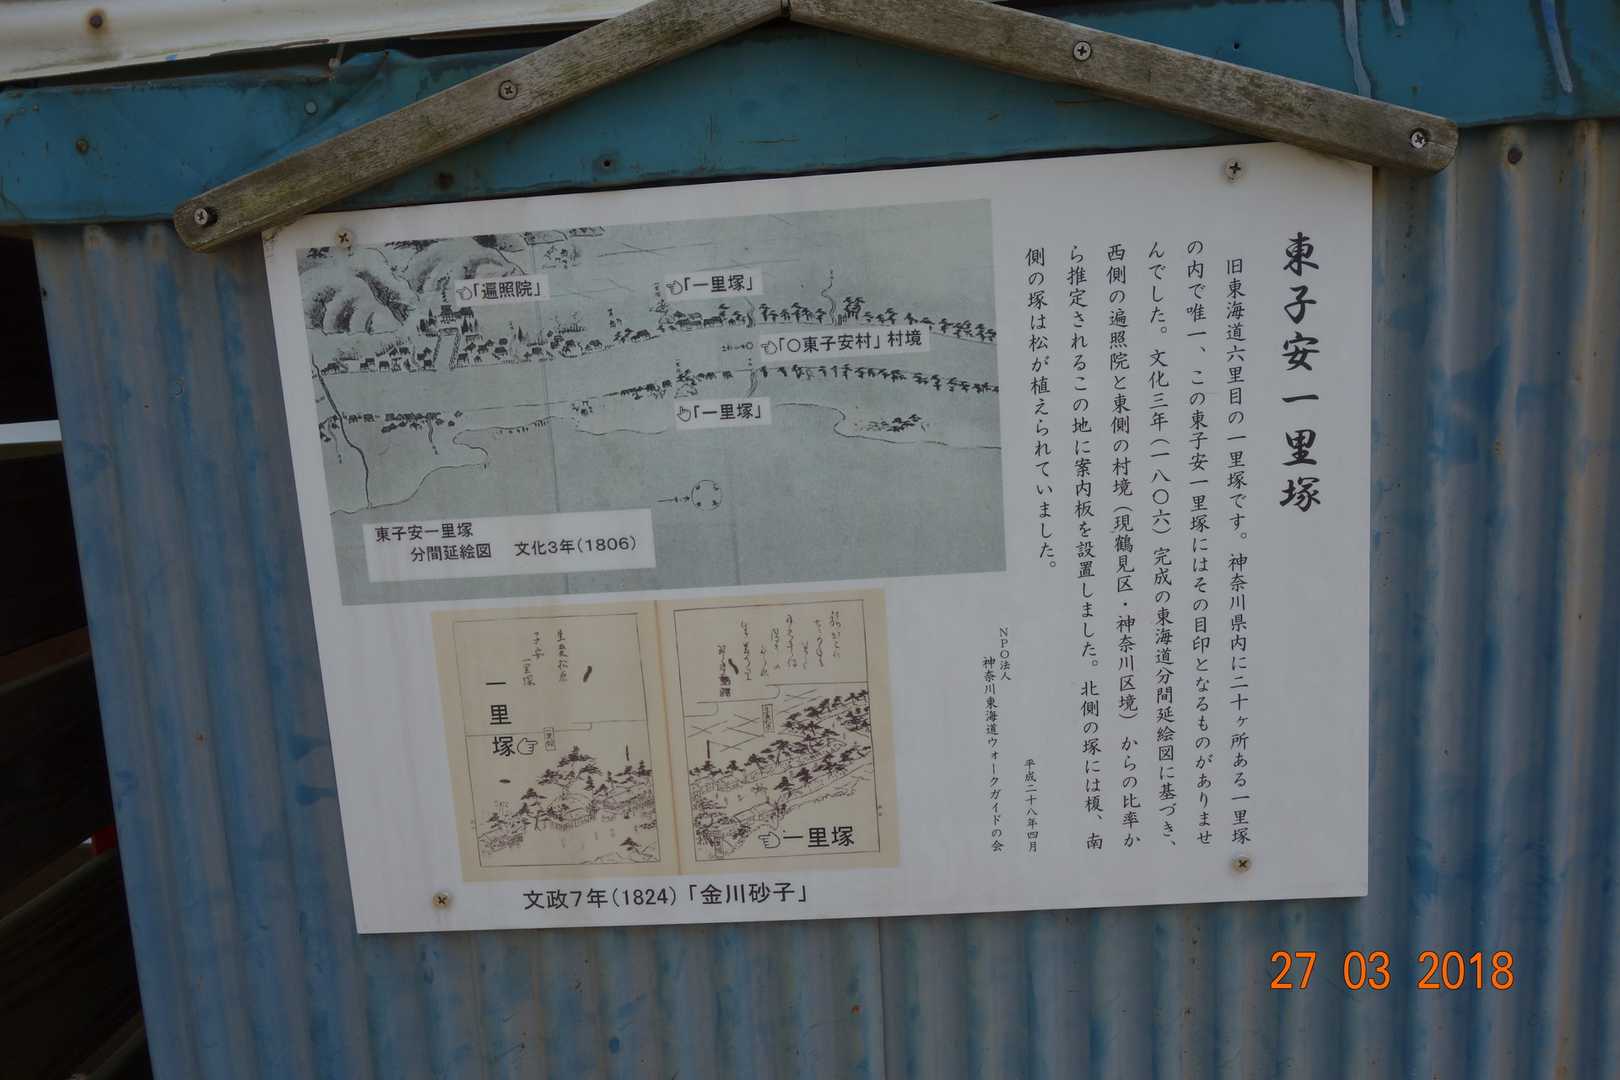 東子安一里塚
旧東海道六里目の一里塚です。神奈川県内に二十ヶ所ある一里塚
の内で唯一、この東子安一里塚にはその目印となるものがありませ
んでした。文化三年(一八〇六)完成の東海道分間延絵図に基づき、
西側の遍照院と東側の村境(現鶴見区・神奈川区境)からの比率か
ら推定されるこの地に案内板を設置しました。北側の塚には榎、南
側の塚は松が植えられていました。
平成二十八年四月
NPO法人
神奈川東海道ウォークガイドの会
「遍照院」
「一里塚」
「〇東子安村」村境
「一里塚」
東子安一里塚
分間延絵図 文化3年(1806)
生麦松原
子安
一里塚
一里塚
一里塚
文政7年(1824)「金川砂子」
27 03 2018